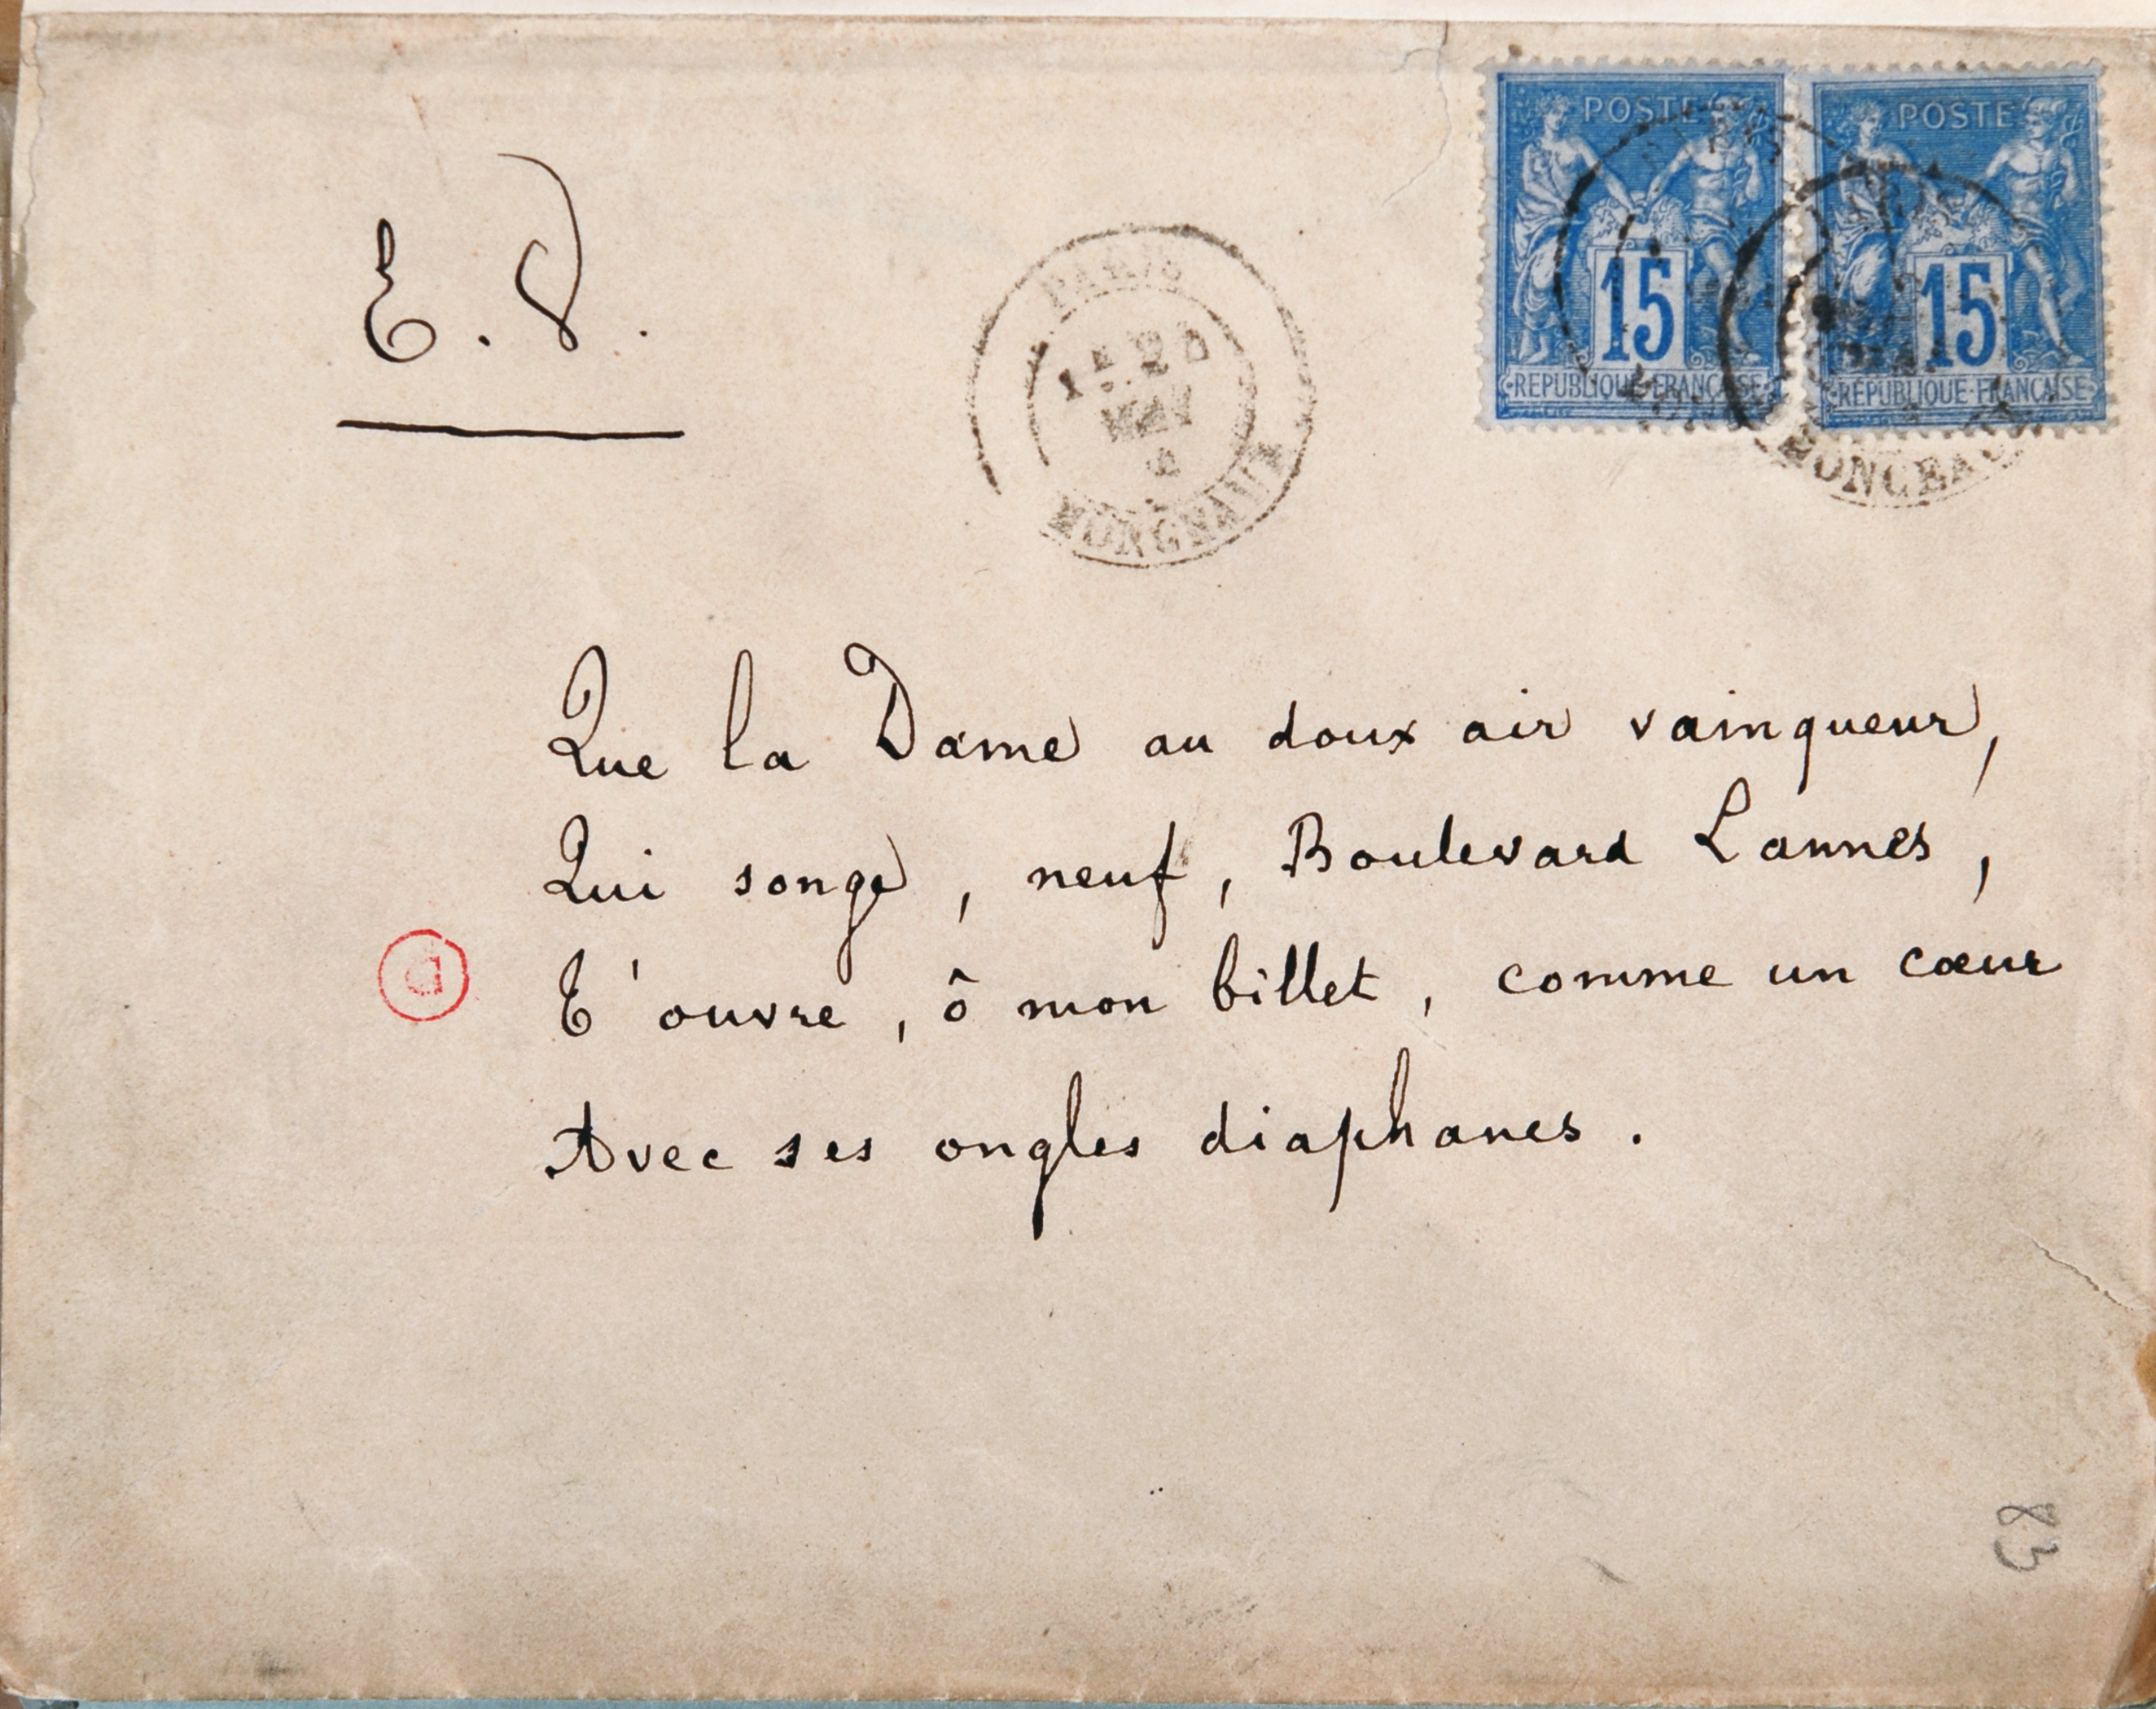 POSTE
POSTE
E. V.
PARIS
MONCEAUX
15
15
REPUBLIQUE FRANÇAISE
REPUBLIQUE FRANÇAISE
MONCEAUX
Que la Dame au doux air vainqueur,
Qui songe, neuf, Boulevard Lannes,
T'ouvre, ô mon billet, comme un cœur
Avec ses ongles diaphanes.
D
83